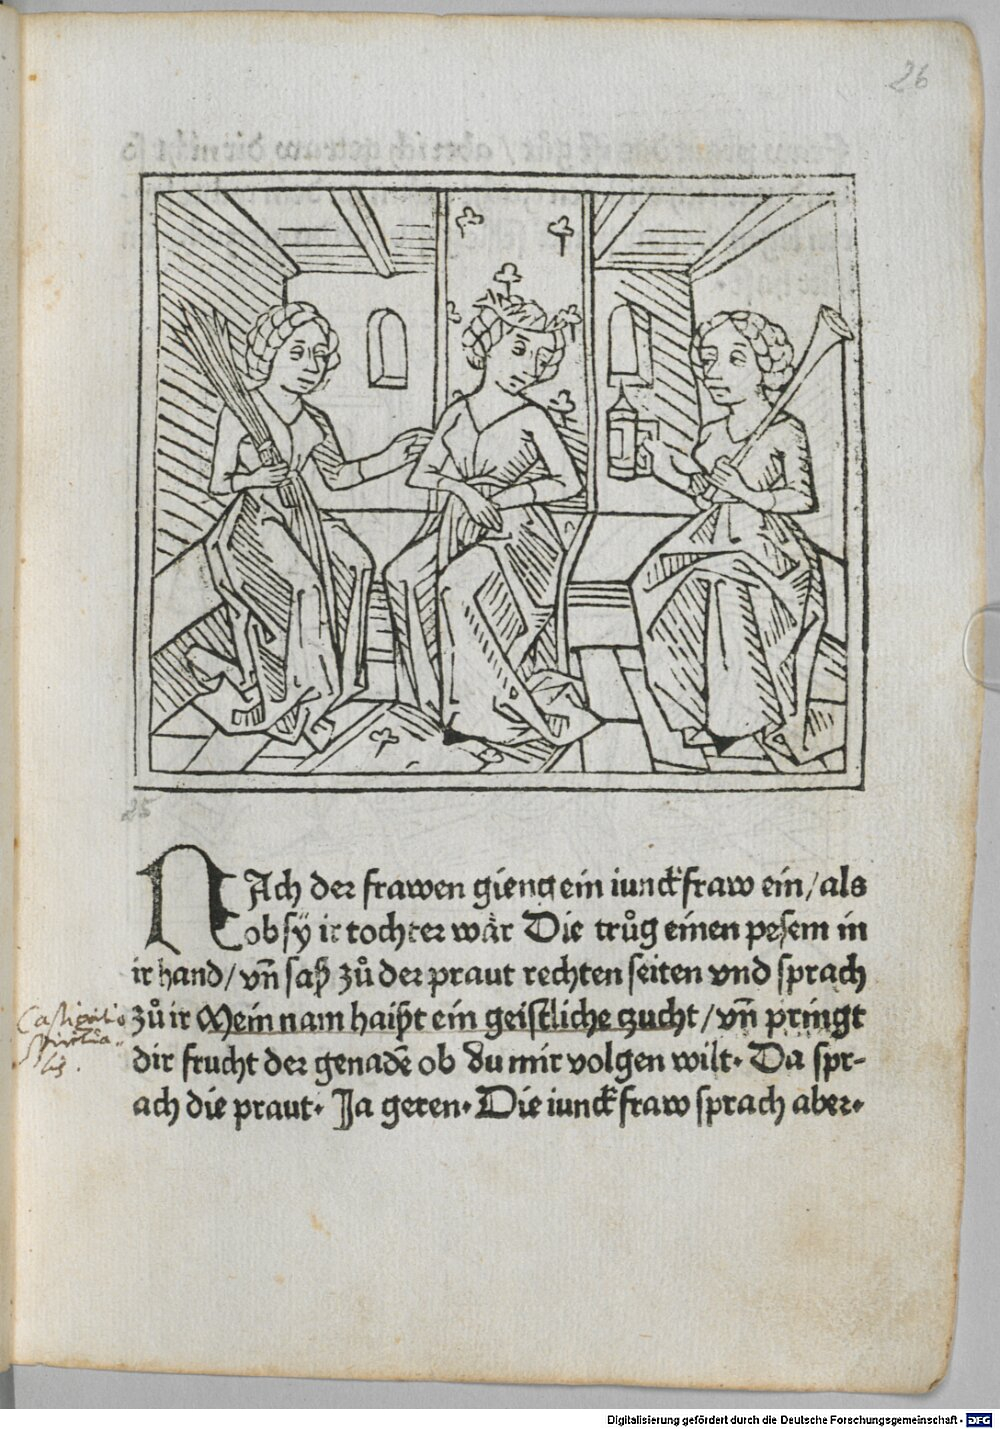 26
25
NAch der frawen gieng ein iunckfraw ein/als
ob sÿ ir tochter wär Die trůg einen pesem in
ir hand/vñ saß zů der praut rechten seiten vnd sprach
zů ir Mein nam haißt ein geistliche zucht/vñ pringt
dir frucht der genadē ob du mir volgen wilt· Da spr-
ach die praut· Ja geren· Die iunckfraw sprach aber·
Castigatio
spiritua-
lis.
Digitalisierung gefördert durch die Deutsche Forschungsgemeinschaft - DFG